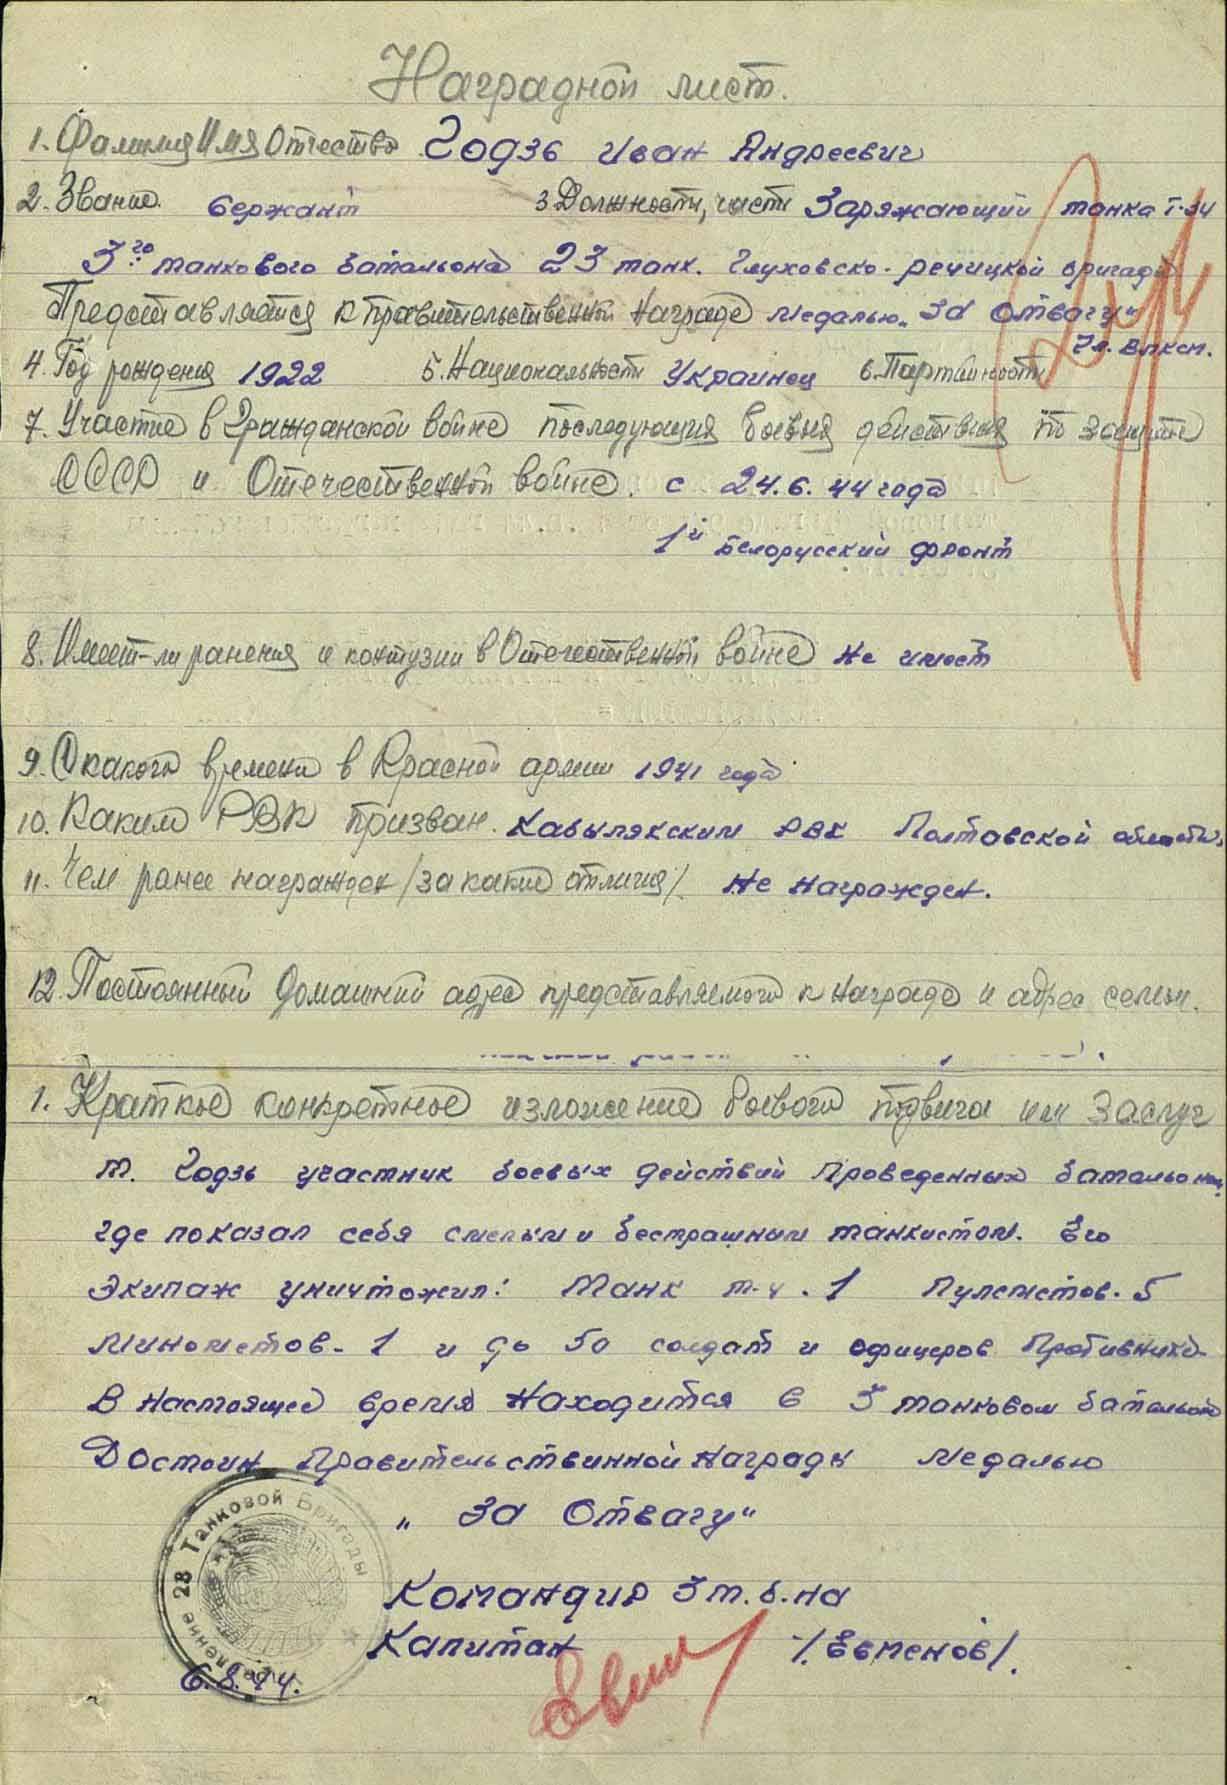 Наградной лист.
1. Фамилия Имя Отчество Годзь Иван Андреевич
2. Звание. Сержант 3 Должность, часть Заряжающий танка Т-34
3го танкового батальона 23 танк. Глуховско-речицкой бригады
Представляется к правительственной награде медалью „За отвагу"
Чл. ВЛКСМ.
4. Год рождения 1922 5. Национальность Украинец 6. Партийность
7. Участие в Гражданской войне последующия боевыя действия по защите
СССР и Отечественной войне. с 24.6.44 года
1й Белорусский фронт
8. Имеет-ли ранения и контузии в Отечественной войне не имеет
9. С какого времени в Красной армии 1941 года
10. Каким РВК призван. Кабылякским РВК Полтовской области.
11. Чем ранее награжден /за какие отличия/ Не награжден.
12. Постоянный домашний адрес представляемого к награде и адрес семьи.
1. Краткое конкретное изложение боевого подвига или заслуг
т. Годзь участник боевых действий проведенных батальоном,
где показал себя смелым и бестрашным танкистом. Его
экипаж уничтожил: Танк т-4. 1 Пулеметов-5
минометов-1 и до 50 солдат и офицеров противника.
В настоящее время находится в 3 танковом батальоне
Достоин Правительственной награды медалью
„За Отвагу"
Командир 3 т.б-на
Капитан /Евменов/.
Управление 28 Танковой Бригады
6.8.44.